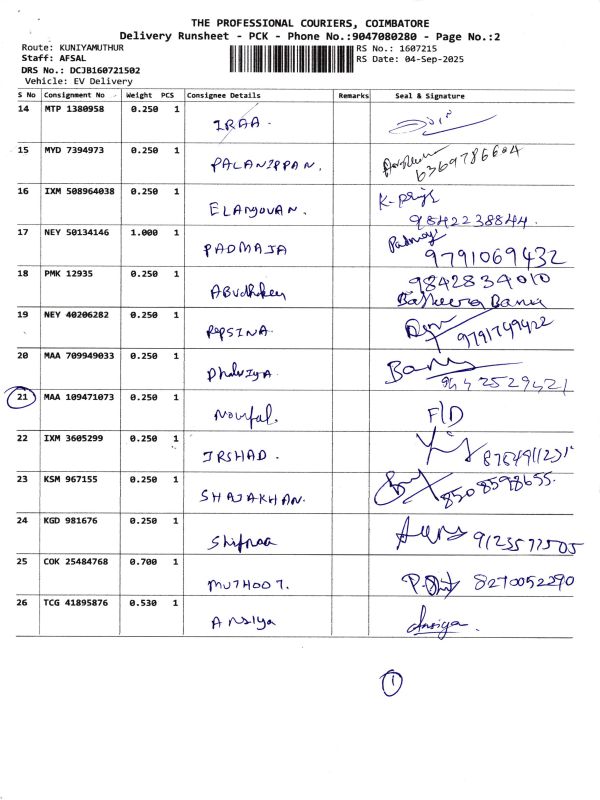 THE PROFESSIONAL COURIERS, COIMBATORE
Delivery Runsheet - PCK - Phone No.:9047080280 - Page No.:2
Route: KUNIYAMUTHUR RS No.: 1607215
Staff: AFSAL RS Date: 04-Sep-2025
DRS No.: DCJB160721502
Vehicle: EV Delivery
S No Consignment No Weight PCS Consignee Details Remarks Seal & Signature
14 MTP 1380958 0.250 1
IRAA.
15 MYD 7394973 0.250 1
PALANIPPAN. 6369786604
16 IXM 508964038 0.250 1
ELANGOVAN. 9842238844.
17 NEY 50134146 1.000 1
PADMAJA 9791069432
18 PMK 12935 0.250 1 9842834010
19 NEY 40206282 0.250 1
PEPSINA. 9791749422
20 MAA 709949033 0.250 1
21 MAA 109471073 0.250 1
Noufal. F/D
22 IXM 3605299 0.250 1
IRSHAD.
23 KSM 967155 0.250 1
SHAJAKHAN. 8508598655.
24 KGD 981676 0.250 1
25 COK 25484768 0.700 1
MUTHOOT. 8270052290
26 TCG 41895876 0.530 1
Ansiya Ansiya.
1